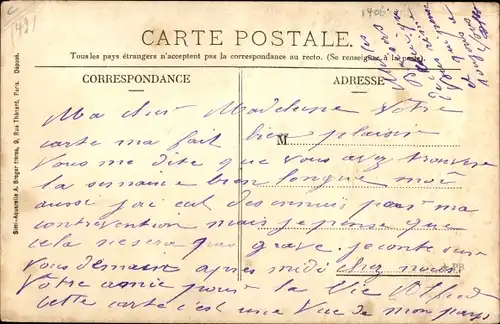 1491
1406
CARTE POSTALE.
Tous les pays étrangers n'acceptent pas la correspondance au recto. (Se renseigner à la poste)
CORRESPONDANCE
ADRESSE
M
Simi-Aquarelle A. Breger frères, 9, Rue Thénard, Paris. Déposé.
Ma cher Madeleine Votre
carte ma fait bien plaisir
Vous me dite que vous avez trouver
la semaine bien longue moi
aussi j'ai eut des ennuis pour ma
contrevention mais je pense que
cela ne sera pas grave. je conte sur
vous demain après midi chez nous
Votre amie pour la Vie Alfred
cette carte c'est une Vue de mon pays